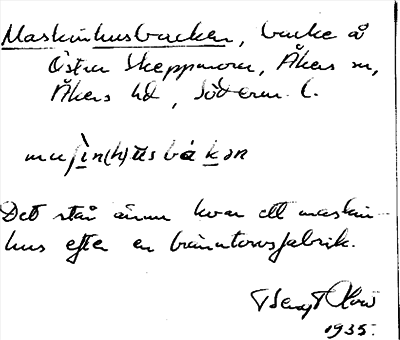 Maskinhusbacken, backe å
Östra Skeppmora, Åkers sn,
Åkers hd, Söderm. l.
Det står ännu kvar ett maskin-
hus efter en bränntorvsfabrik.
Bengt
1935.